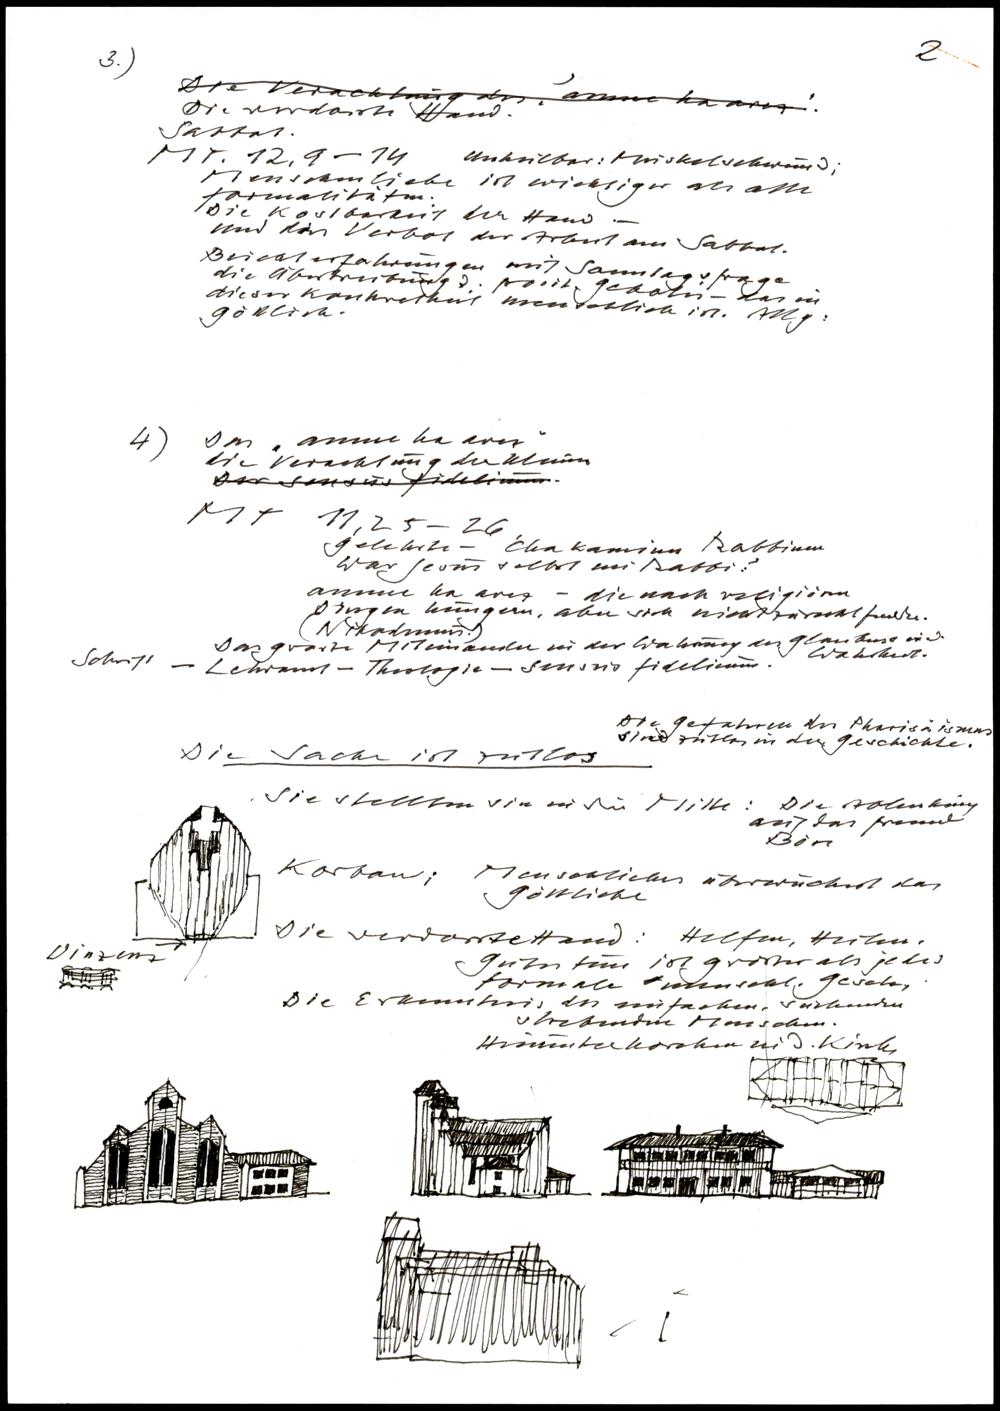 2
3.)
Die Verachtung des 'amme ha arez'.
Die verdorrte Hand.
Sabbat.
Mt. 12,9-14 Unheilbar: Muskelschwund;
Menschenliebe ist wichtiger als alle
Formalitäten.
Die Kostbarkeit der Hand -
und das Verbot der Arbeit am Sabbat.
Beichterfahrungen mit Sonntagsfrage
die Übertreibung d. posit. Gebotes - das in
dieser Konkretheit menschlich ist. Allg:
göttlich.
4) Das "amme ha arez"
die Verachtung der Kleinen
Der sensus fidelium.
Mt 11,25-26
Gelehrte - Chakamim Rabbinen
War Jesus selbst ein Rabbi?
amme ha arez - die nach religiösen
Dingen hungern, aber sich nicht zurechtfinden.
(Nikodemus)
Das große Miteinander in der Wahrung des Glaubens und
Wahrheit.
Schrift - Lehramt - Theologie - sensus fidelium.
Die Gefahren des Pharisäismus
sind zeitlos in der Geschichte.
Die Sache ist zeitlos
Sie stellten sie in die Mitte: Die Ablenkung
auf das fremde
Böse
Korban; Menschliches überwuchert das
Göttliche
Die verdorrte Hand: Helfen, Heilen.
Gutes tun ist größer als jedes
formale menschl. Gesetz.
Vinzenz
Die Erkenntnis des einfachen, suchenden
strebenden Menschen.
Hineinhorchen in d. Kirche